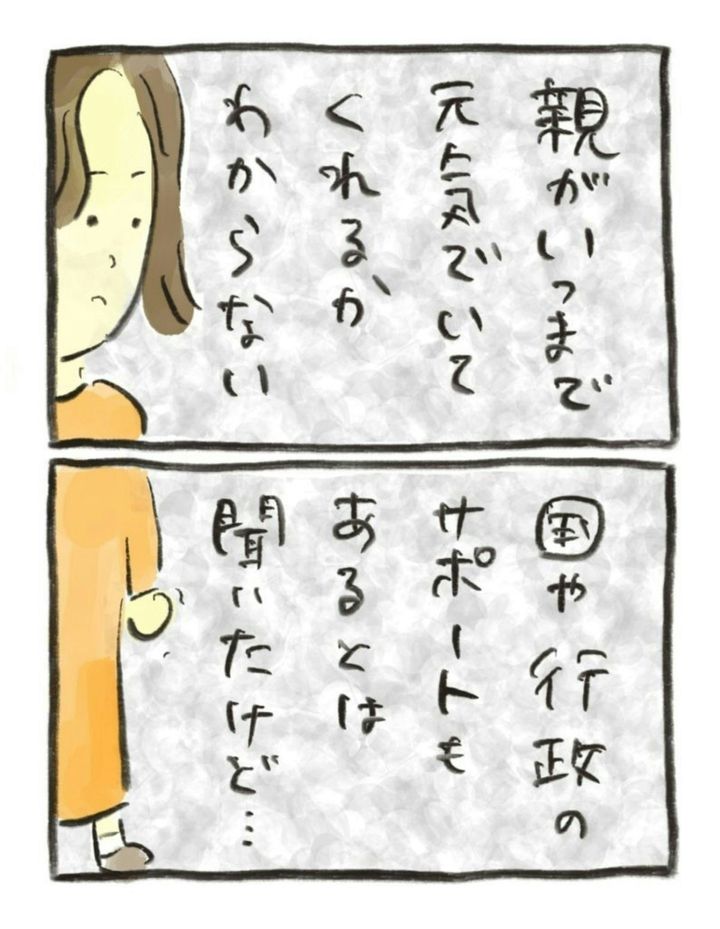 親がいつまで
元気でいて
くれるか
わからない
国や行政の
サポートも
あるとは
聞いたけど…